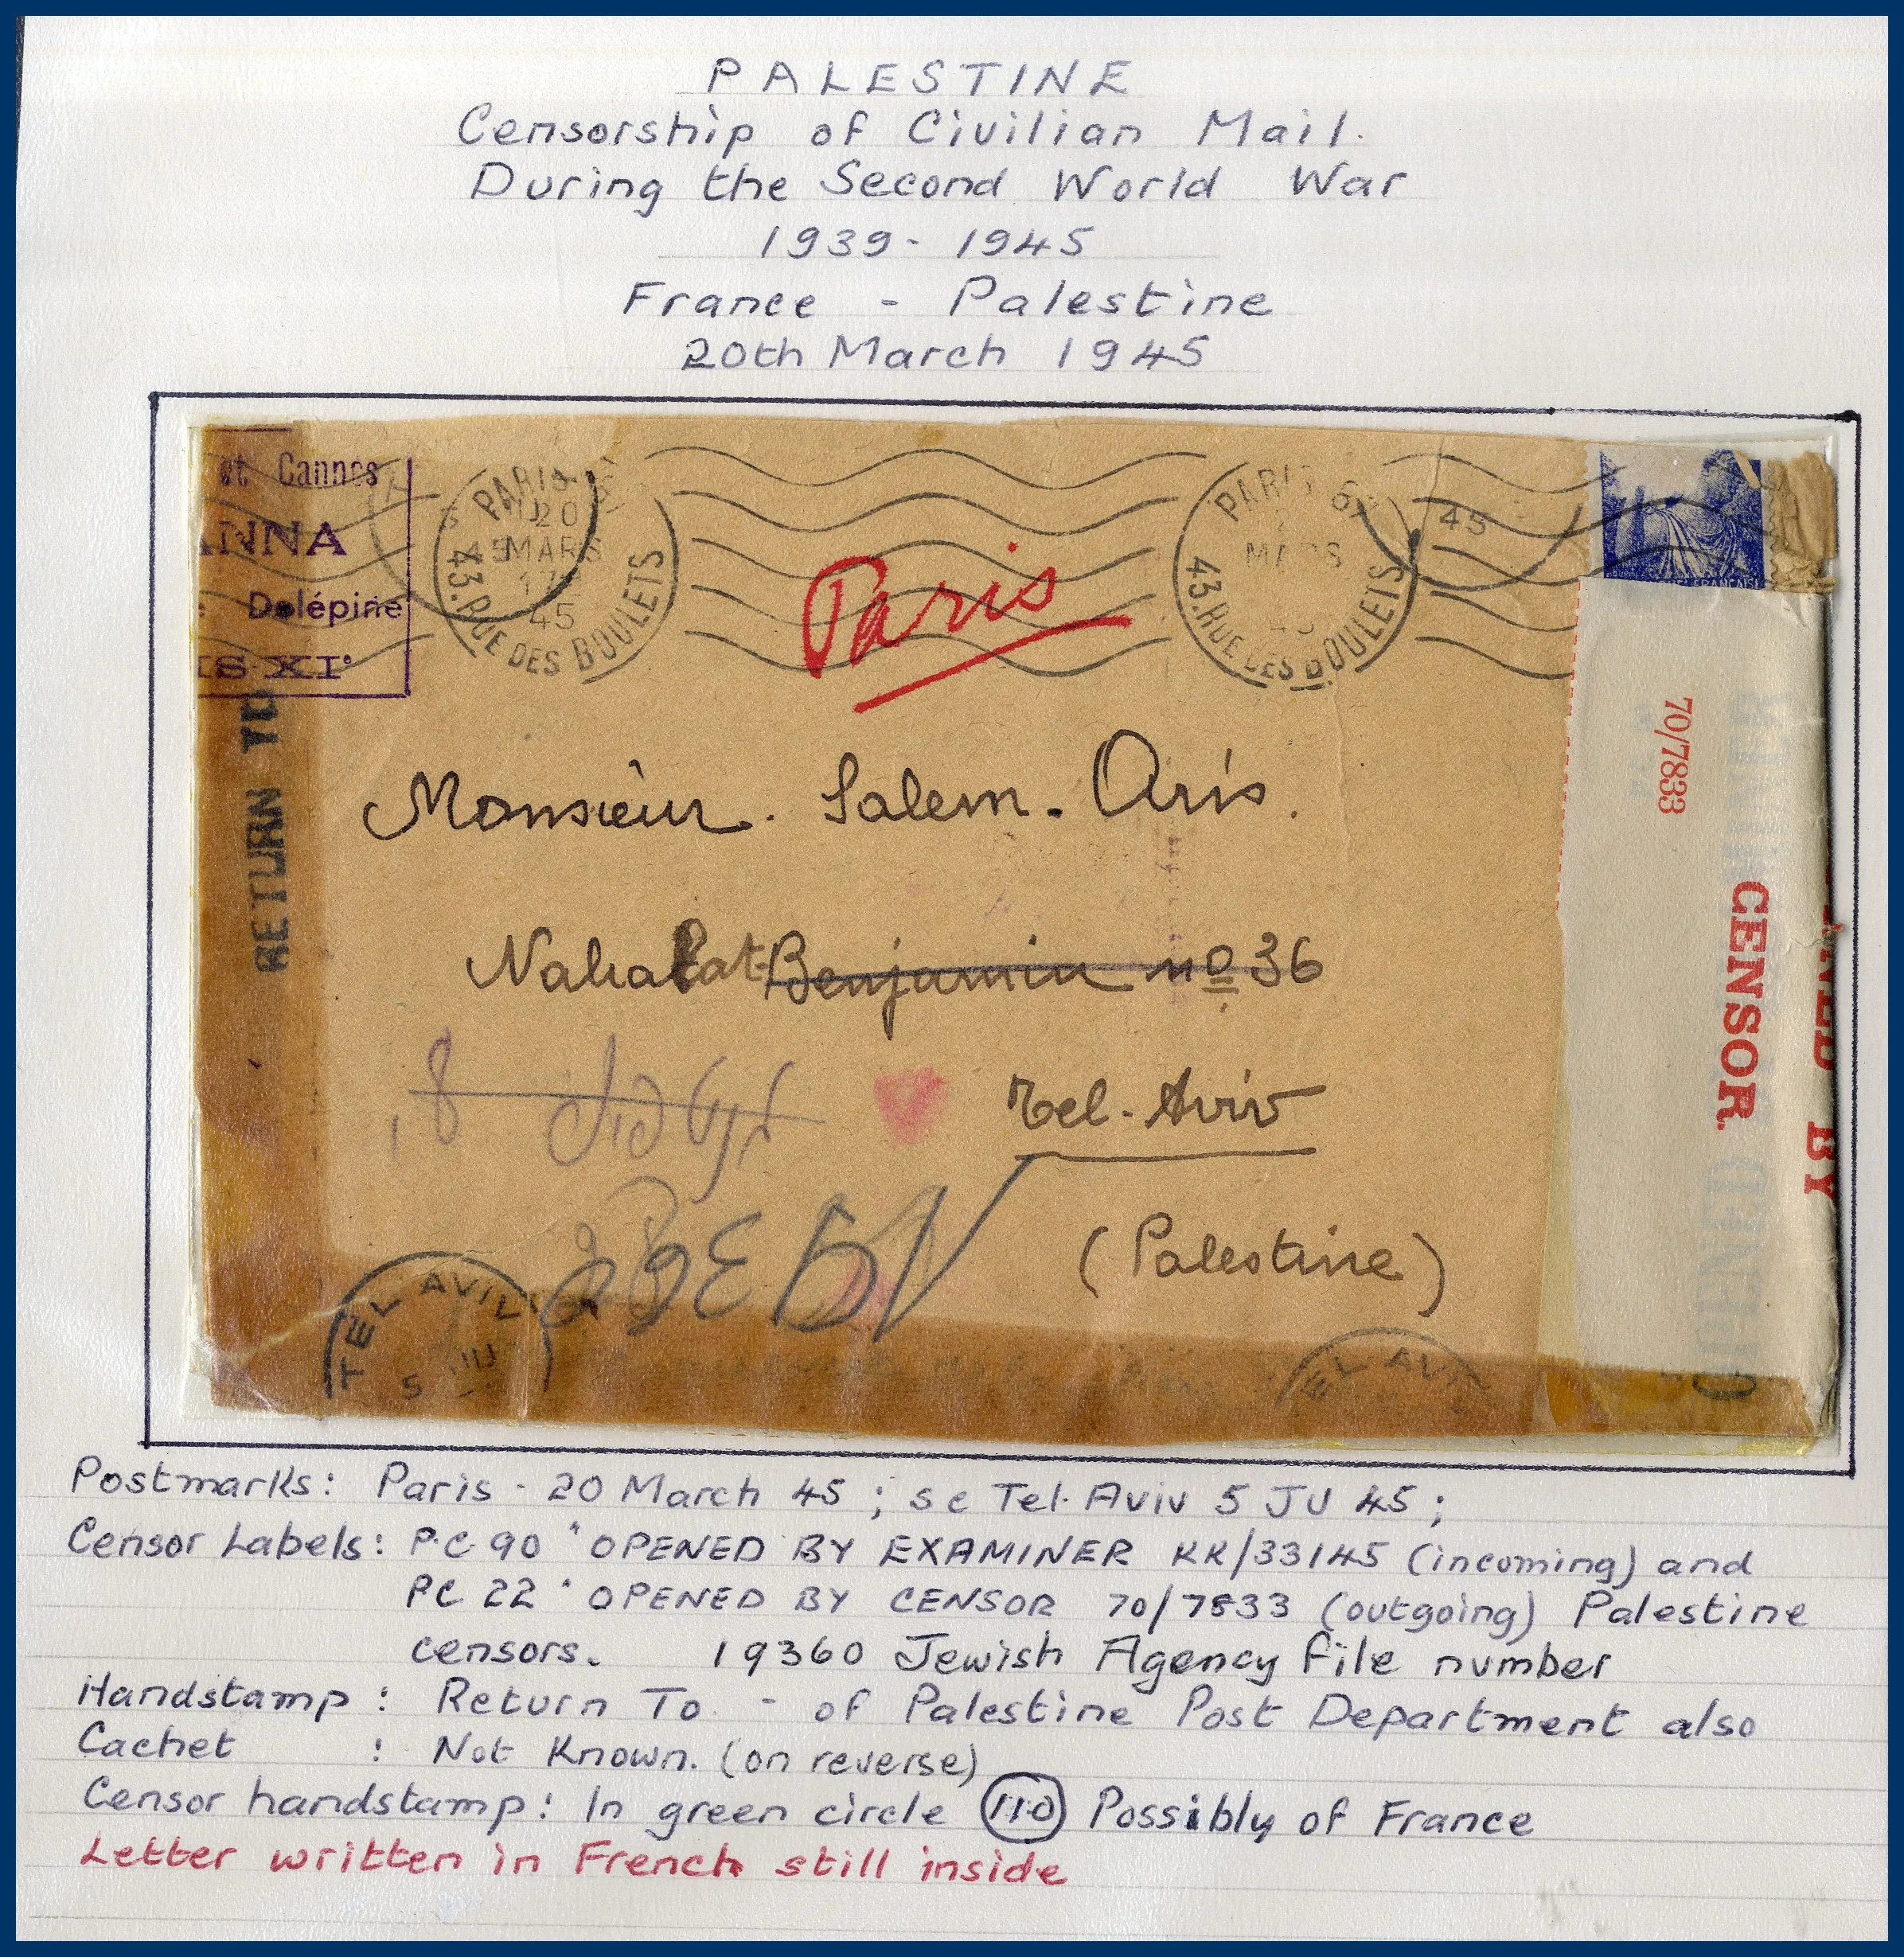 PALESTINE
Censorship of Civilian Mail.
During the Second World War
1939 - 1945
France - Palestine
20th March 1945
et Cannes
NNA
Delépine
IS-XIº
PARIS
20
MARS
45
43.RUE DES BOULETS
PARIS
MARS
43.RUE DES BOULETS
45
Paris
RETURN TO
70/7833
CENSOR.
NED BY
Monsieur. Salem. Aris.
Nahalat-Benjamin nº 36
Tel-Aviv
(Palestine)
TEL AVIV
5 JU
EL AVI
Postmarks: Paris - 20 March 45; sc Tel. Aviv 5 JU 45;
Censor Labels: P.C. 90 "OPENED BY EXAMINER KK/33145 (incoming) and
PC 22 "OPENED BY CENSOR 70/7833 (outgoing) Palestine
censors. 19360 Jewish Agency file number
Handstamp: Return To - of Palestine Post Department also
Cachet : Not Known. (on reverse)
Censor handstamp: In green circle 110 Possibly of France
Letter written in French still inside